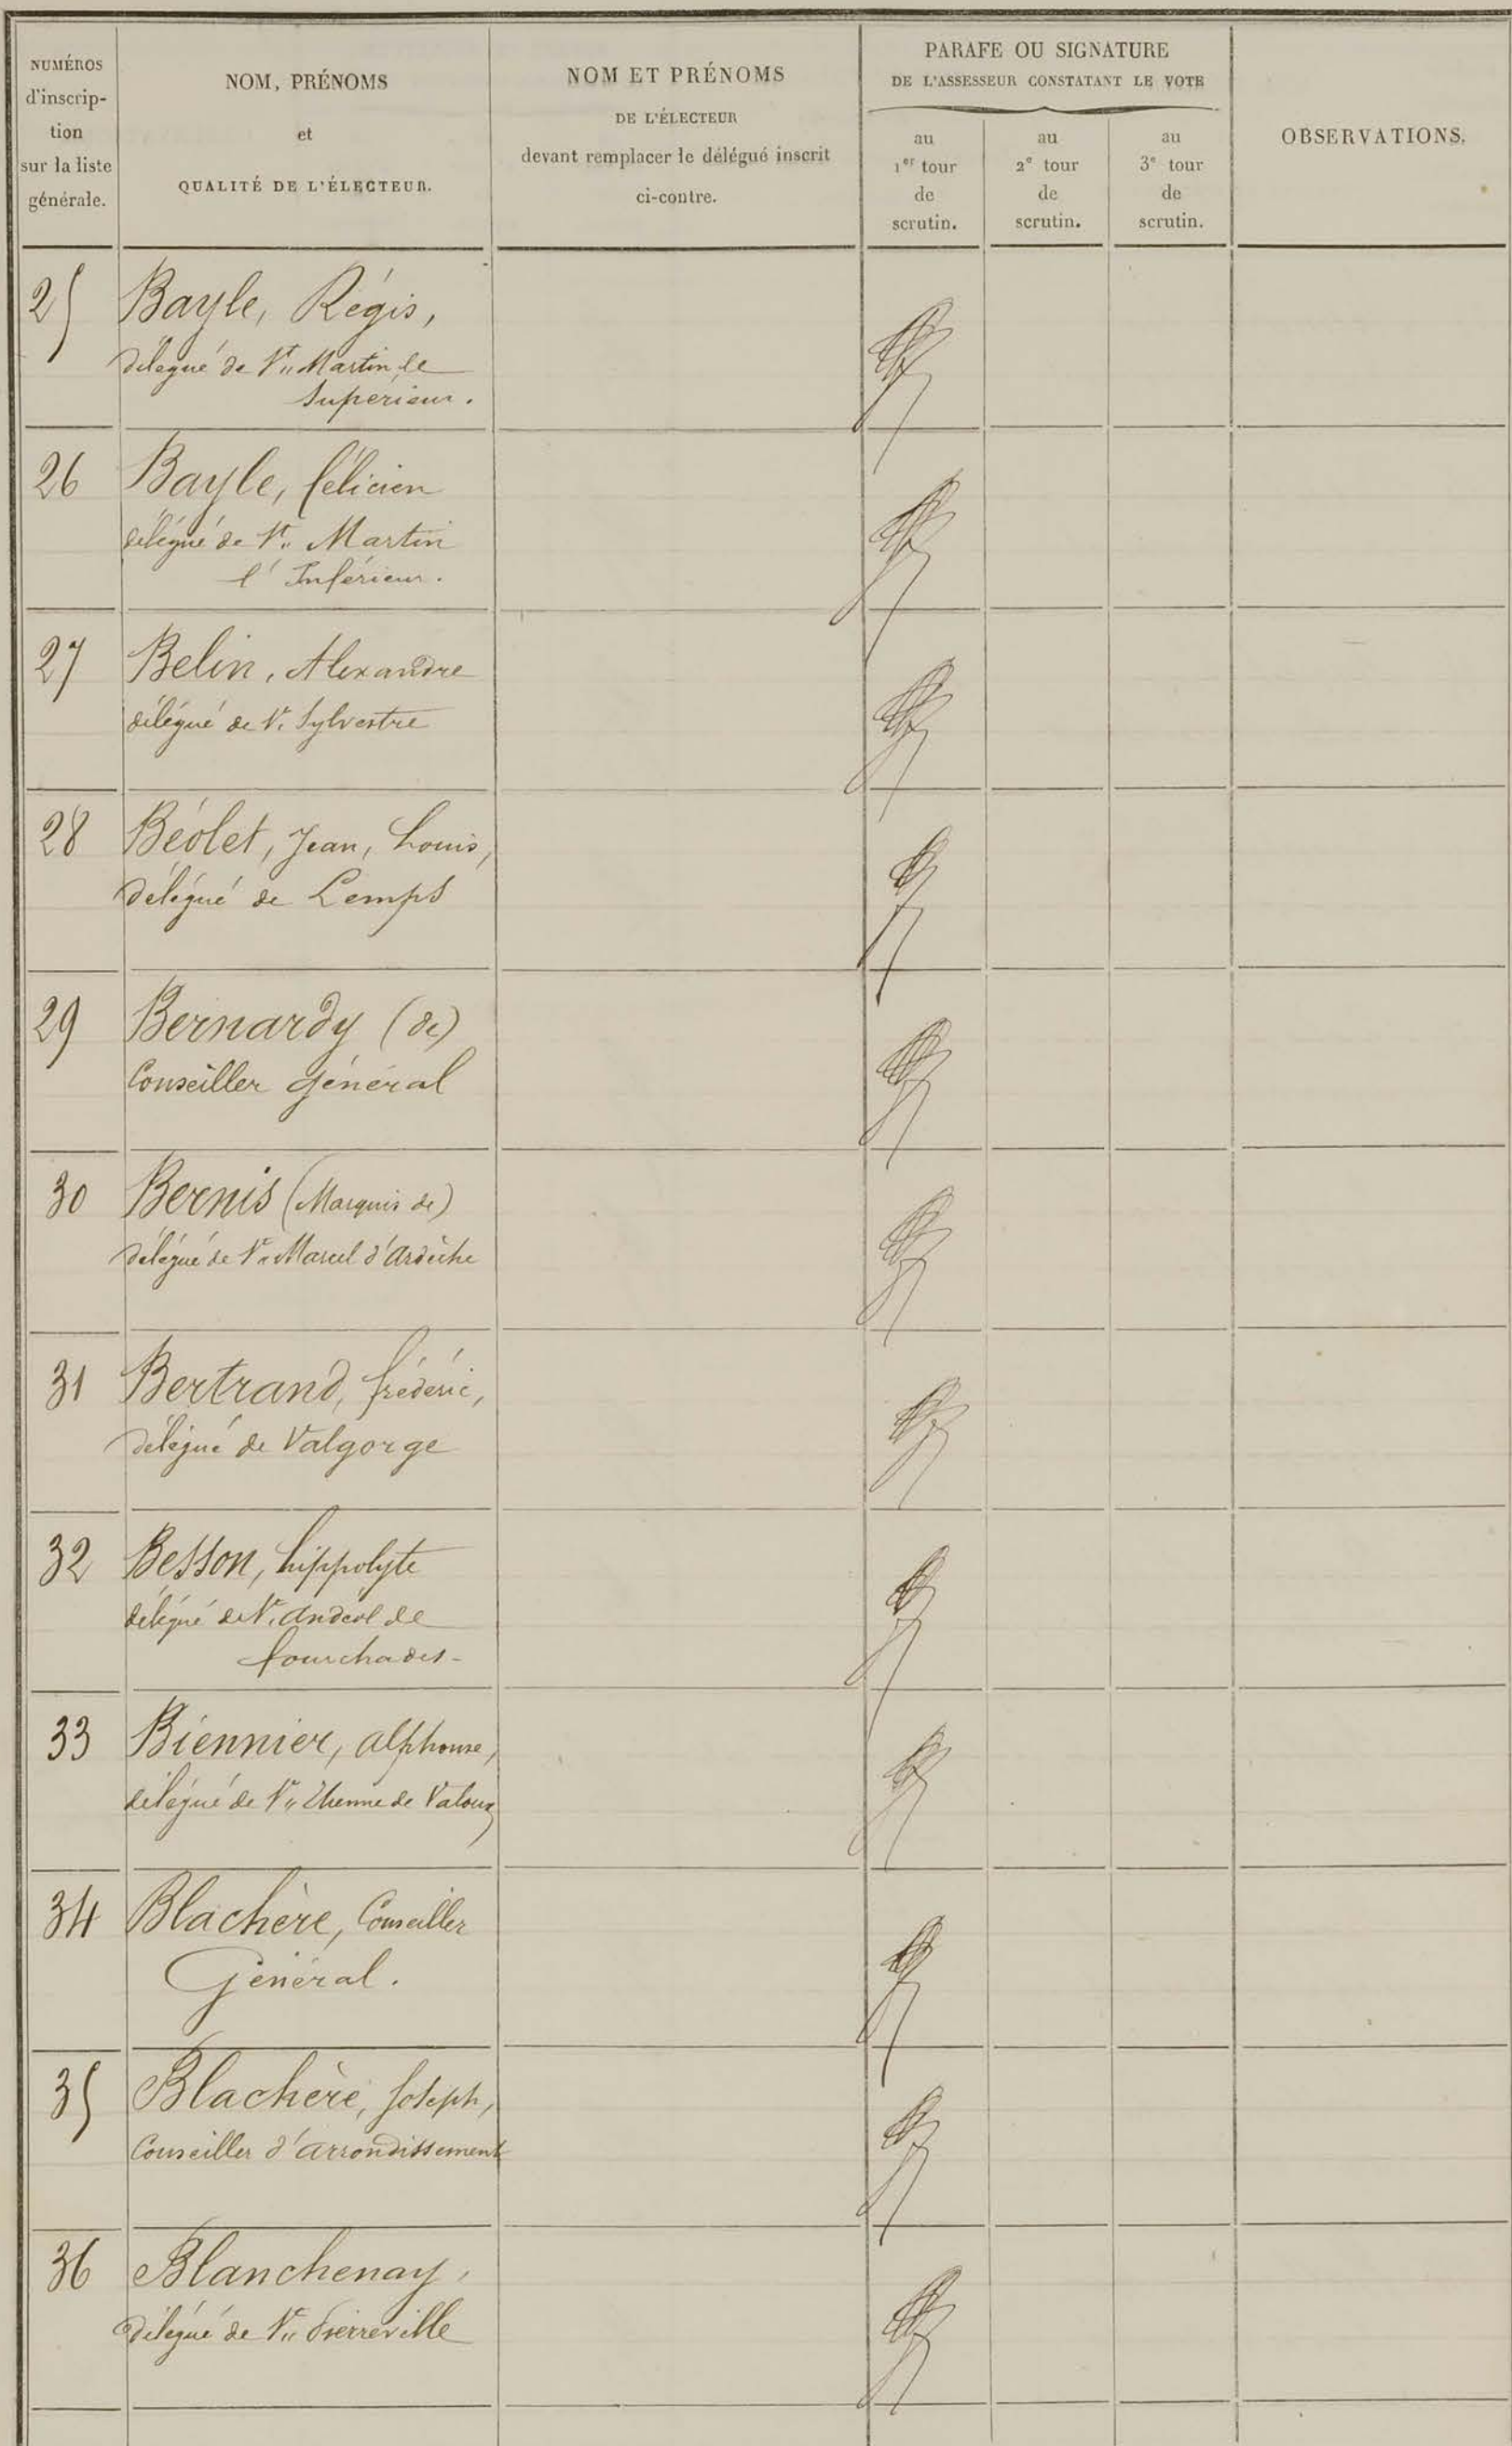 NUMÉROS
d'inscrip-
tion
sur la liste
générale.
NOM, PRÉNOMS
et
QUALITÉ DE L'ÉLECTEUR.
NOM ET PRÉNOMS
DE L'ÉLECTEUR
devant remplacer le délégué inscrit
ci-contre.
PARAFE OU SIGNATURE
DE L'ASSESSEUR CONSTATANT LE VOTE
au
1er tour
de
scrutin.
au
2e tour
de
scrutin.
au
3e tour
de
scrutin.
OBSERVATIONS.
25 Bayle, Régis,
délégué de St. Martin le
Superieur.
26 Bayle, félicien
délégué de St. Martin
l'Inférieur.
27 Belin, Alexandre
délégué de St. Sylvestre
28 Béolet, Jean, Louis,
délégué de Lemps
29 Bernardy (de)
Conseiller Général
30 Bernis (Marquis de)
délégué de St. Marcel d'Ardèche
31 Bertrand, frédéric,
délégué de Valgorge
32 Besson, hippolyte
délégué de St. Andéol de
fourchades-
33 Biennier, alphonse,
délégué de St. Etienne de Valoux
34 Blachère, Conseiller
Général.
35 Blachère, Joseph,
Conseiller d'arrondissement
36 Blanchenay,
délégué de St. Pierreville